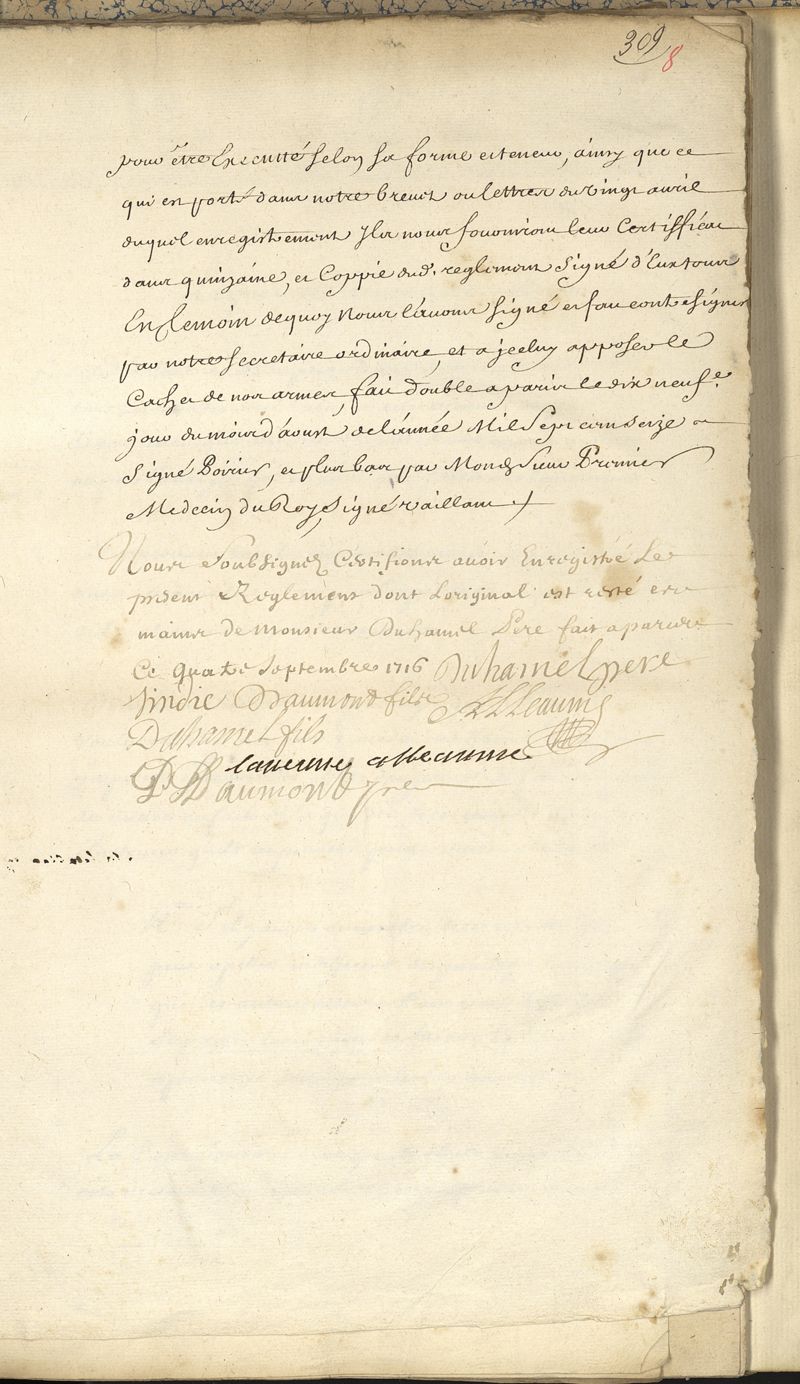 309
8
pour être Executé selon sa forme et teneur, ainsy que ce
qui est porté dans notre brevet ou lettres du vingt avril
duquel enregistrement Ils nous fourniront leur Certifficat
dans quinzaine, et Coppie dud. reglement signé d'Eux tous
En temoin de quoy Nous l'avons signé et fait contresigner
par notre secretaire ordinaire, et a jceluy apposer le
Cachet de nos armes, fait double a paris le dix neufe.
jour du mois d'aoust de l'année Mil Sept cent seize
Signé Poirier, et plus bas par Mond. Sieur Premier
Medecin du Roy, Signé vaillant
Nous Soubsignez Certifions avoir Enregistré Le
present Reglement dont Loriginal est resté es
mains de Monsieur Duhamel Pere fait a paris
Ce Quatre Septembre 1716 Duhamel pere
sindic Daumond fils
Duhamel fils
alleaume
Daumond